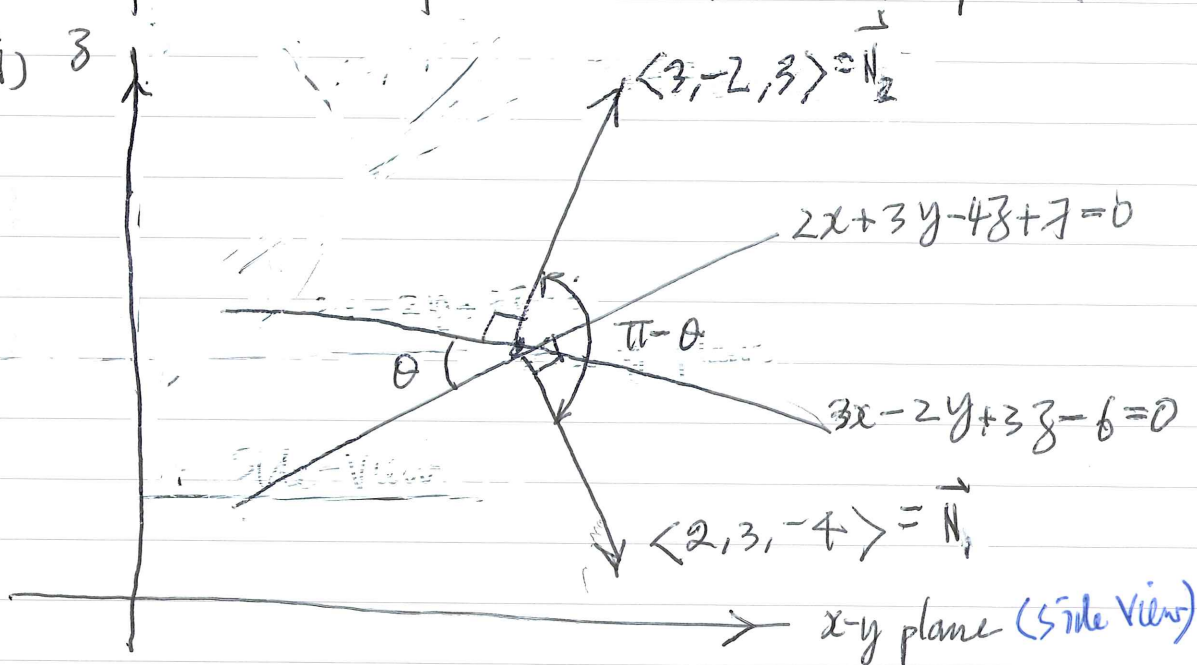 i) z
<3,-2,3> = N⃗₂
2x+3y-4z+7=0
π-θ
θ
3x-2y+3z-6=0
<2,3,-4> = N⃗₁
x-y plane (Side View)